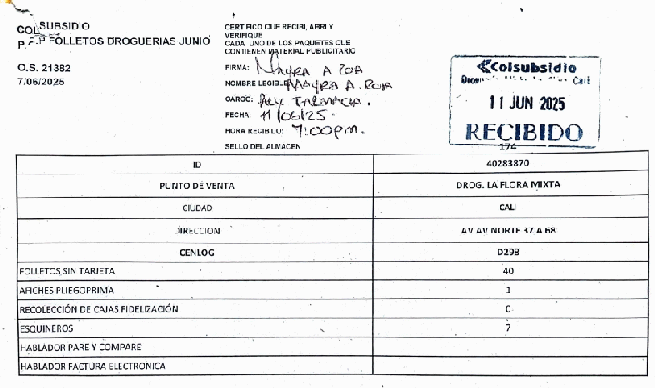 COLSUBSIDIO
P.P.P FOLLETOS DROGUERIAS JUNIO
O.S. 21382
7.06/2025
CERTIFICO QUE RECIBI, ABRI Y
VERIFIQUE
CADA UNO DE LOS PAQUETES QUE
CONTIENEN MATERIAL PUBLICITARIO
FIRMA: Mayra A Roa
NOMBRE LEGIBLE: Mayra A. Roa
CARGO:
FECHA 11/06/25.
HORA RECIBIDO: 7:00pm.
SELLO DEL ALMACEN
Colsubsidio
11 JUN 2025
RECIBIDO
174
ID 40283870
PUNTO DE VENTA DROG. LA FLORA MIXTA
CIUDAD CALI
DIRECCION AV AV NORTE 37 A 68
CENLOG D29B
FOLLETOS SIN TARJETA 40
AFICHES PLIEGOPRIMA
RECOLECCIÓN DE CAJAS FIDELIZACIÓN
ESQUINEROS 7
HABLADOR PARE Y COMPARE
HABLADOR FACTURA ELECTRONICA